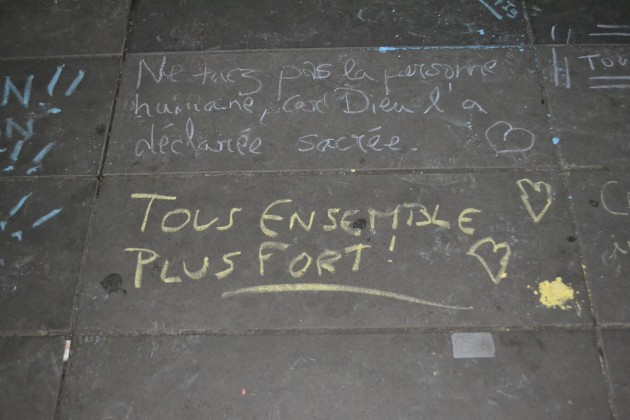 Ne tuez pas la personne
humaine, car Dieu l'a
déclarée sacrée.
TOUS ENSEMBLE
PLUS FORT!
N!!
ON
!!
!!
TOU